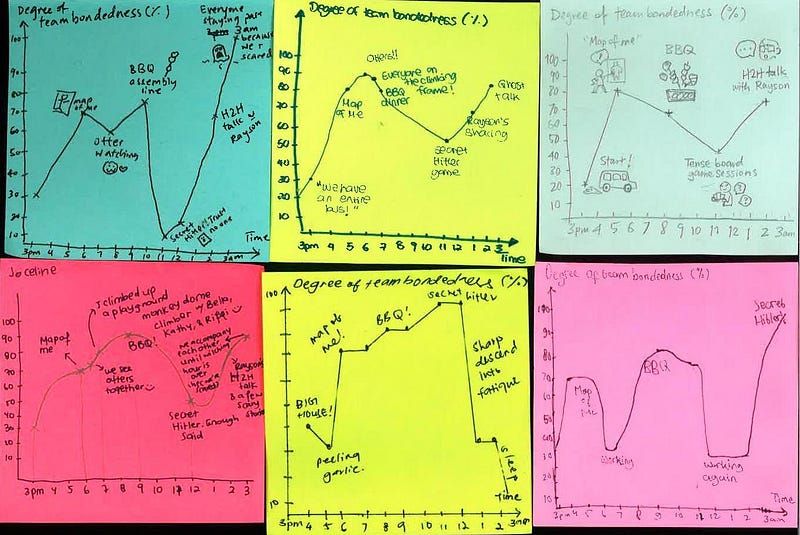 Degree of
team bondedness (%)
Everyone
staying past
3am
because
we r
scared
100
90
80
70
60
50
40
30
20
10
map
of me
Otter
watching
BBQ
assembly
line
H2H
talk
Rayson
Secret
Hitler: Trust
no one
3pm 4 5 6 7 8 9 10 11 12 1 2 3am
Time
Degree of team bondedness (%)
100
90
80
70
60
50
40
30
20
"We have
an entire
bus!"
Map
of Me
Otters!!
Everyone on
the climbing
frame!
BBQ
dinner
Secret
Hitler
game
Rayson's
sharing
Ghost
talk
3pm 4 5 6 7 8 9 10 11 12 1 2 3
time
Degree of team bondedness (%)
100
90
80
70
60
50
40
30
20
10
"Map of me"
Start!
BBQ
Tense board
game sessions
H2H talk
with Rayson
3pm 4 5 6 7 8 9 10 11 12 1 2 3am
Joceline
100
90
80
70
60
50
40
30
20
10
Map of
me
I climbed up
a playground
monkey dome
climber w Bella,
Kathy, & Ripei
we see
otters
together
BBQ!
we accompany
each other
until
hour is
over
Secret
Hitler. Enough
said
Rayson's
H2H
talk
& a few
scary
3pm 4 5 6 7 8 9 10 11 12 1 2 3
Degree of team bondedness (%)
100
10
BIG
HOUSE!
peeling
garlic.
map of
me!
BBQ!
secret hitler
sharp
descend
into
fatigue
sleep
Time
3pm 4 5 6 7 8 9 10 11 12 1 2 3am
Degree of team bondedness (%)
100
90
80
70
60
50
40
30
20
10
Map
of me
Working
BBQ
Working
again
Secret
Hitler
Time
3pm 4 5 6 7 8 9 10 11 12 1 2 3am